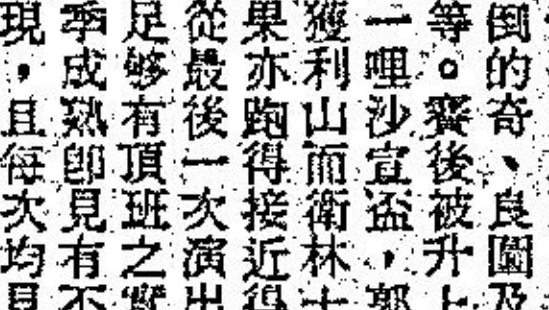 倒的奇、良園及
等。賽後被升上
一哩沙宣盃，郭
獲利山而衛林士
果亦跑得接近得
從最後一次演出
足够有頂班之實
季成熟即見有不
現，且每次均見